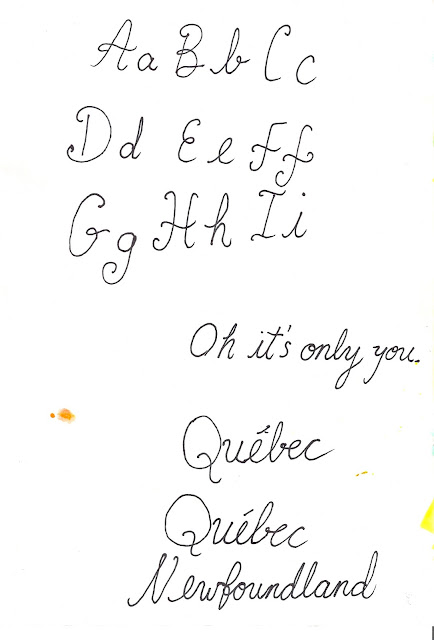 Aa Bb Cc
Dd Ee Ff
Gg Hh Ii
Oh it's only you.
Québec
Québec
Newfoundland